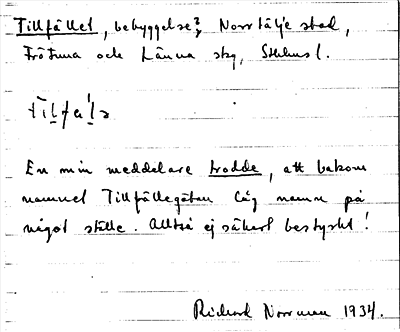 Tillfället, bebyggelse?, Norrtälje stad,
Frötuna och Länna skg, Sthlms l.
En min meddelare trodde, att bakom
namnet Tillfällegatan låg namn på
något ställe. Alltså ej säkert bestyrkt!
Rickard Norrman 1934.